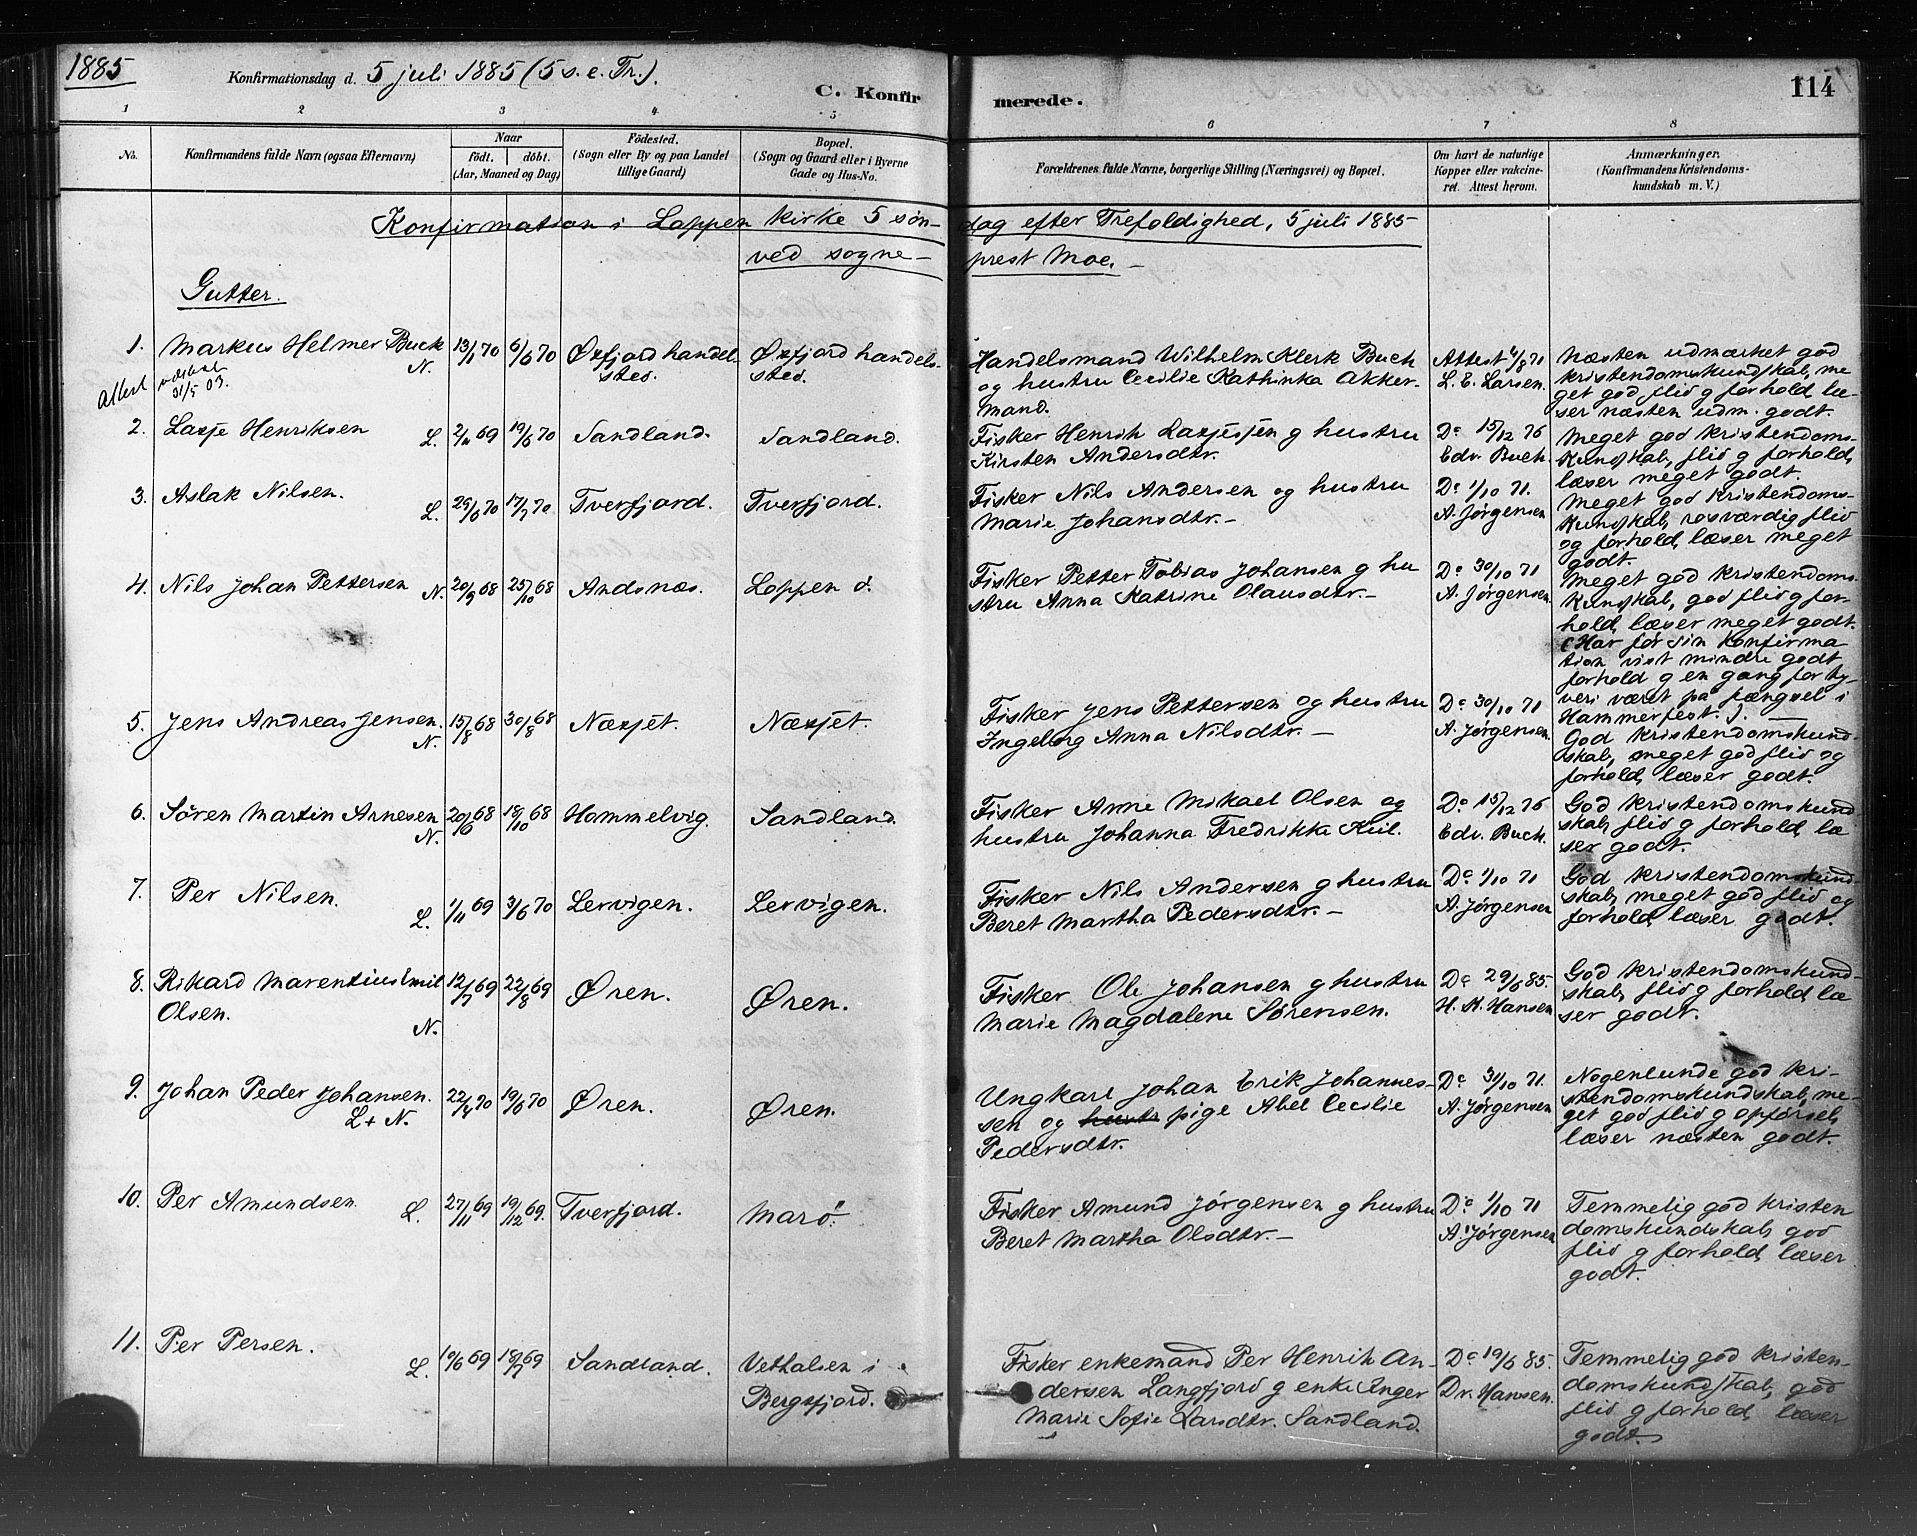 1885
Konfirmationsdag d. 5 juli 1885 (5 s. e. Tr.).
C. Konfirmerede.
114
1 2 3 4 5 6 7 8
No.
Konfirmandens fulde Navn (ogsaa Efternavn)
Naar
födt. döbt.
(Aar, Maaned og Dag)
Födested.
(Sogn eller By og paa Landet
tillige Gaard)
Bopæl.
(Sogn og Gaard eller i Byerne
Gade og Hus-No.
Forældrenes fulde Navne, borgerlige Stilling (Næringsvei) og Bopæl.
Om havt de naturlige
Kopper eller vakcine-
ret. Attest herom.
Anmærkninger.
(Konfirmandens Kristendoms-
kundskab m. V.)
Konfirmation i Loppen kirke 5 søn- dag efter Trefoldighed, 5 juli 1885
ved sogne- prest Moe. -
Gutter.
1. Markus Helmer Buck N. 13/1 70 6/6 70 Øxfjord handel-
sted. Øxfjord handels-
sted.
Attest 31/5 03.
Handelsmand Wilhelm Klerk Buch
og hustru Cecilie Kathinka Akker-
mand.
Attest 4/8 71
L. E. Larsen.
Næsten udmærket god
kristendomskundskab, me-
get god flid og forhold, læ-
ser næsten udm. godt.
2. Lasje Henriksen L. 2/11 69 19/6 70 Sandland. Sandland.
Fisker Henrik Lasjesen g hustru
Kirsten Andersdtr.
Do 15/12 76
Edv. Buck.
Meget god kristendoms-
kundskab, flid g forhold,
læser meget godt.
3. Aslak Nilsen. L. 29/6 70 17/7 70 Tverfjord. Tverfjord.
Fisker Nils Andersen og hustru
Marie Johansdtr. -
Do 1/10 71.
A. Jørgensen
Meget god kristendoms-
kundskab, rosværdig flid
og forhold, læser meget
godt.
4. Nils Johan Pettersen N. 20/9 68 25/10 68 Andsnæs. Loppen ö.
Fisker Petter Tobias Johansen g hu
stru Anna Katrine Olausdtr. -
Do 30/10 71
A. Jørgensen.
Meget god kristendoms-
kundskab, god flid g for-
hold, læser meget godt.
(Har før sin Konfirma-
tion vist mindre godt
forhold g en gang for ty-
veri været på fængsel i
Hammerfest.). -
5. Jens Andreas Jensen. N. 15/8 68 30/8 68 Næsjet. Næsjet.
Fisker Jens Pettersen og hustru
Ingeborg Anna Nilsdtr. -
Do 30/10 71
A. Jørgensen.
God kristendomskund-
skab, meget god flid og
forhold, læser godt.
6. Søren Martin Arnesen N. 20/6 68 18/10 68 Hommelvig. Sandland.
Fisker Arne Mikael Olsen og
hustru Johanna Fredrikke Kiil.
Do 15/12 76
Edv. Buck.
God kristendomskund
skab, flid g forhold, læ
ser godt.
7. Per Nilsen. L. 1/11 69 3/6 70 Lervigen. Lervigen.
Fisker Nils Andersen g hustru
Beret Martha Pedersdtr. -
Do 1/10 71
A. Jørgensen
God kristendomskund-
skab, meget god flid og
forhold, læser godt.
8. Rikard Marentius Emil
Olsen. N. 12/7 69 22/8 69 Øren. Øren.
Fisker Ole Johansen g hustru
Marie Magdalene Sørensen.
Do 29/6 85.
H. H. Hansen
God kristendomskund-
skab, flid g forhold, læ
ser godt.
9. Johan Peder Johansen. L + N. 22/4 70 19/6 70 Øren. Øren.
Ungkarl Johan Erik Johannes-
sen og hustr pige Abel Cecilie
Pedersdtr.
Do 31/10 71.
A. Jørgensen
Nogenlunde god kri-
stendomskundskab, me-
get god flid g opførsel,
læser næsten godt.
10. Per Amundsen. L. 27/11 69 19/12 69. Tverfjord. Marö.
Fisker Amund Jörgensen g hustru
Beret Martha Olsdtr. -
Do 1/10 71
A. Jørgensen
Temmelig god kristen
domskundskab, god
flid g forhold, læser
godt.
11. Per Persen. L. 10/6 69 18/7 69 Sandland. Vethalsen i
Bergsfjord.
Fisker enkemand Per Henrik An-
dersen Langfjord g enke Inger
Marie Sofie Larsdtr. Sandland.
Do 19/6 85.
Dr. Hansen.
Temmelig god kristen-
domskundskab, god
flid g forhold, læser
godt.